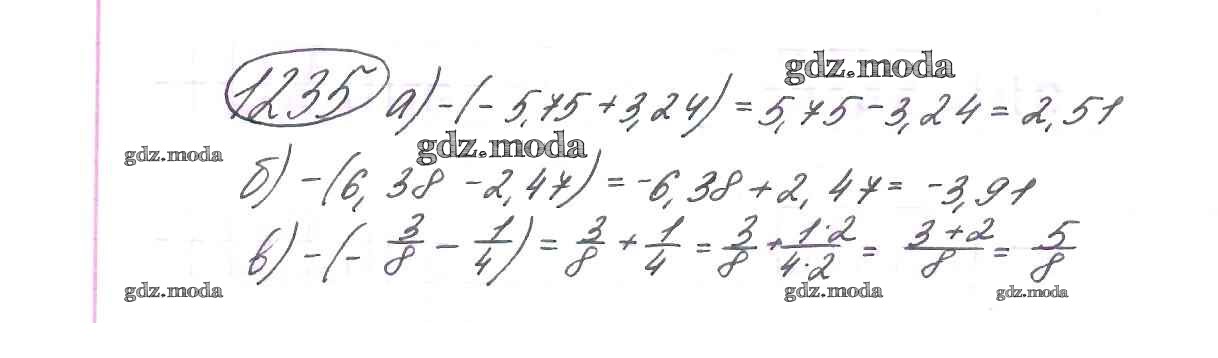 gdz.moda
1235 а) -(-5,75+3,24) = 5,75-3,24 = 2,51
gdz.moda gdz.moda
б) -(6,38-2,47) = -6,38+2,47 = -3,91
в) -(-3/8 - 1/4) = 3/8 + 1/4 = 3/8 + 1·2/4·2 = 3+2/8 = 5/8
gdz.moda gdz.moda gdz.moda